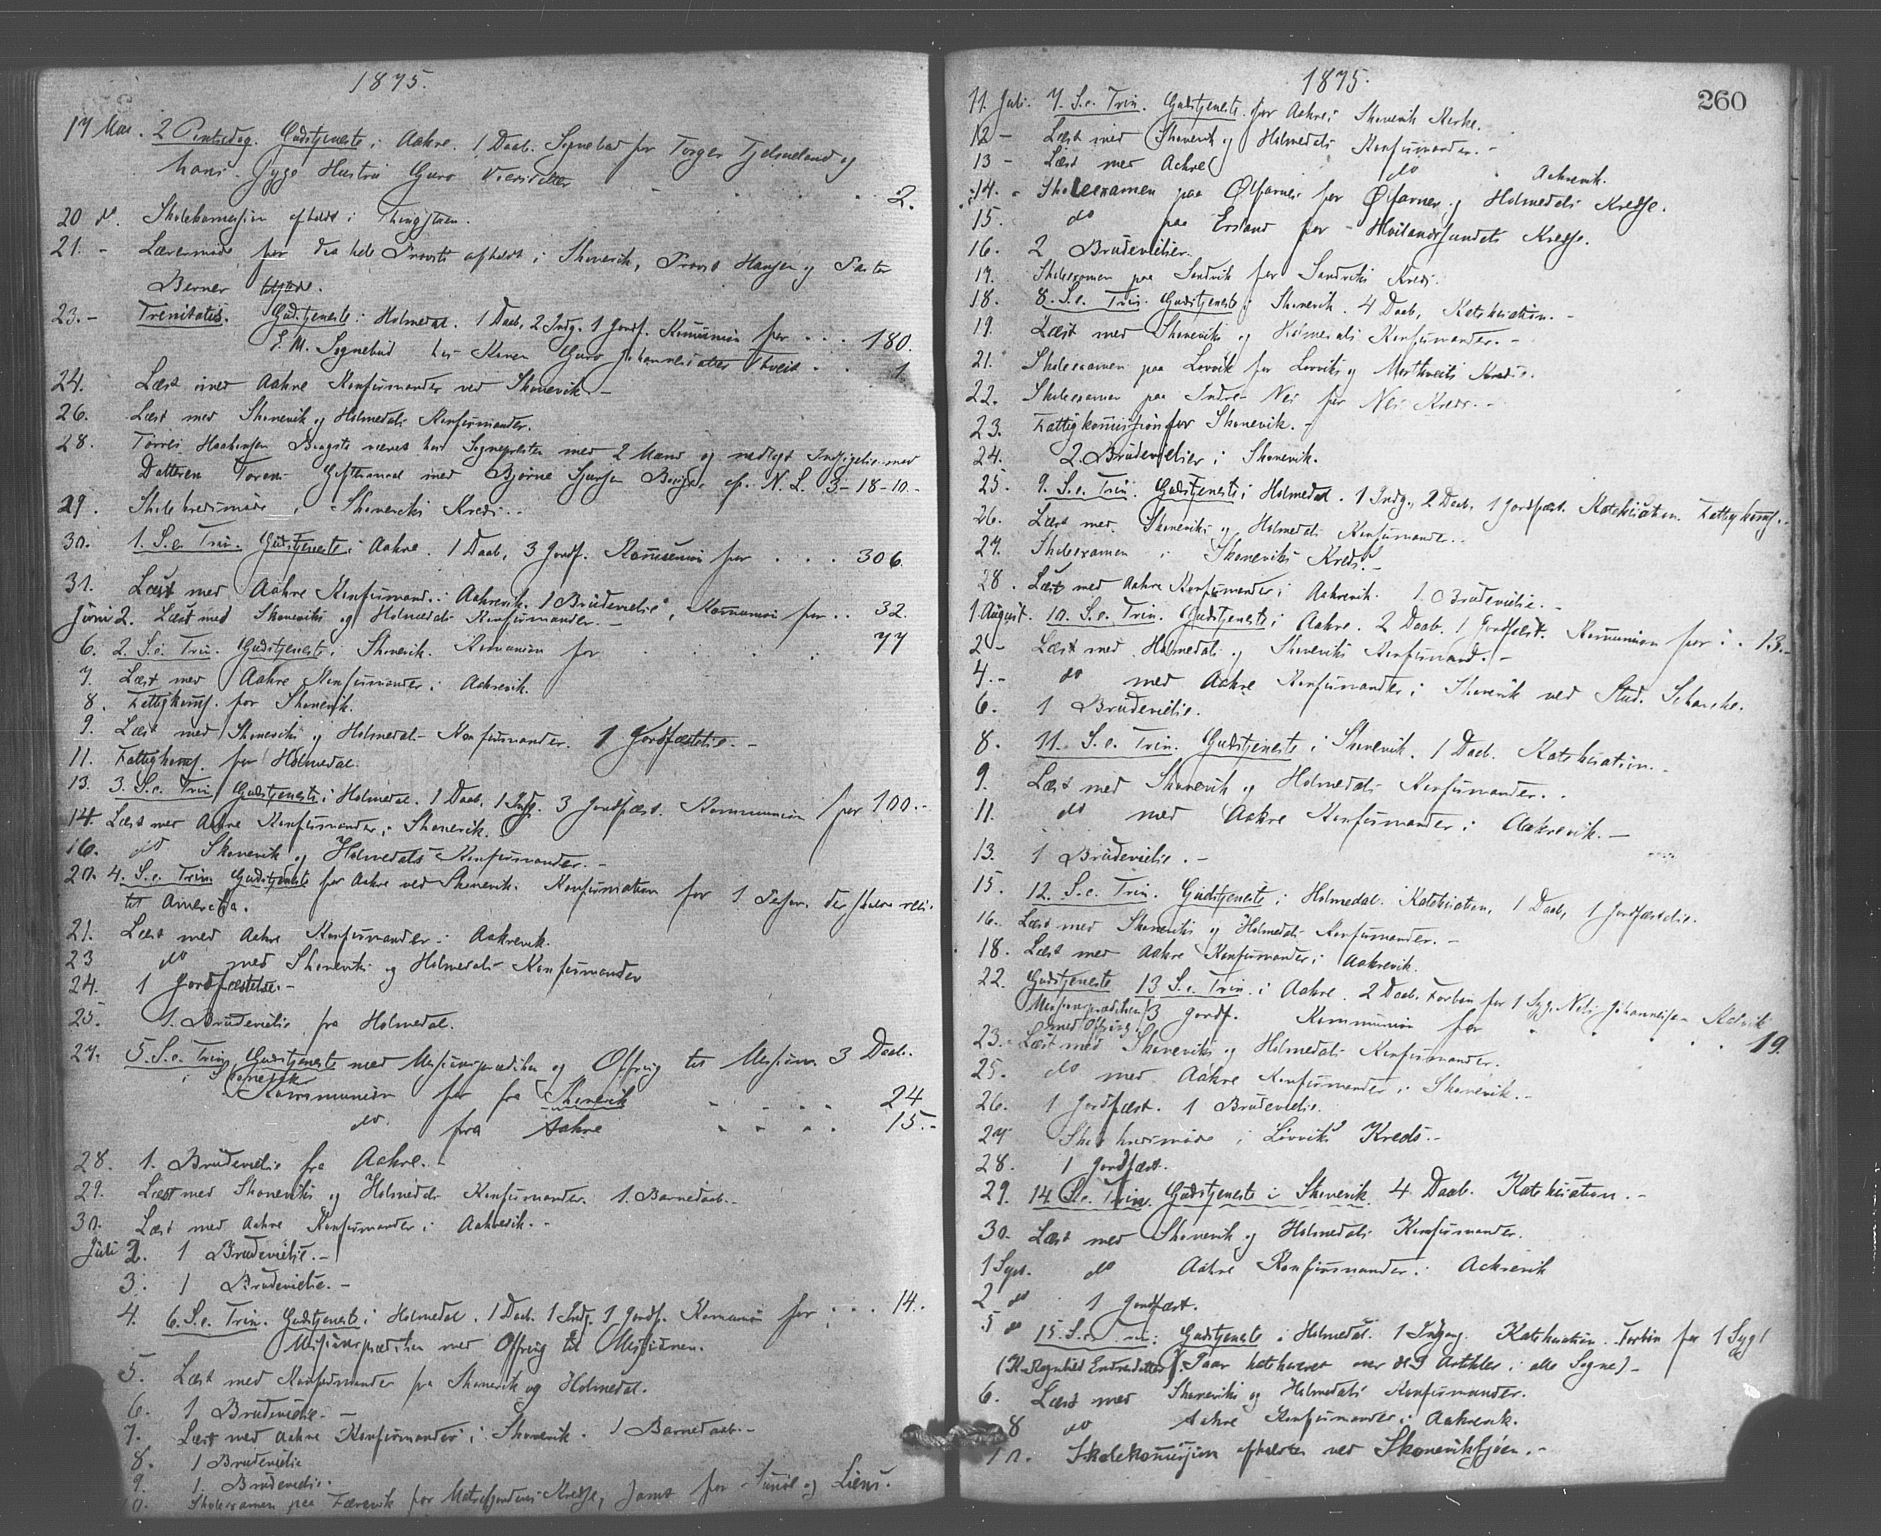 1875.
17 Mai. 2 Pintsedag. Gudstjeneste i Aakre. 1 Daab. Sognebud for Torger Fjelmeland og
hans syge Hustru Guro . . . 2.
20 do. Skolekomission afholdt i
21. - Læremøde for det hele Provsti afholdt i Skonevik, Provst Hansen og Pastor
Berner
23. - Trinitatis. Gudstjeneste i Holmedal. 1 Daab, 2 Indg. 1 Jordf. Komunion for . . . 180.
E. M. Sognebud hos Konen Guro Johannesdatter Tveit . . 1
24. Læst med Aakre Konfirmander ved Skonevik. -
26. Læst med Skonevik og Holmedals Konfirmander.
28. Haakensen været hos Sognepresten med 2 Mænd og nedlagt Indsigelse mod
Datteren Giftermaal med Bjørne Sjursen N. L. 3-18-10-
29. Skolekredsmøde i Skoneviks Kreds. -
30. 1. S. e. Trin. Gudstjeneste i Aakre. 1 Daab, 3 Jordf. Komunion for . . . 306.
31. Læst med Aakre Konfirmand. i Aakrevik. 1 Brudevielse, Komunion for . . 32.
Juni 2. Læst med Skoneviks og Holmedals Konfirmander. -
6. 2. S. e. Trin. Gudstjeneste i Skonevik. Komunion for . . . 77
7. Læst med Aakre Konfirmander i Aakrevik.
8. Fattigkoms. for Skonevik.
9. Læst med Skoneviks og Holmedals Konfirmander. 1 Jordfæstelse. -
11. Fattigkoms. for Holmedal.
13. 3. S. e. Trin. Gudstjeneste i Holmedal. 1 Daab, 1 Indg. 3 Jordfæst. Kommunion for 100. -
14. Læst med Aakre Konfirmander i Skonevik.
16. do Skonevik og Holmedals Konfirmander. -
20. 4. S. e. Trin. Gudstjeneste for Aakre ved Skonevik. Konfirmation for 1 Person der skulde reise
til Amerika.
21. Læst med Aakre Konfirmander i Aakrevik.
23 do med Skoneviks og Holmedals Konfirmander
24. 1 Jordfæstelse. -
25. 1. Brudevielse fra Holmedal.
27. 5. S. e. Trin. Gudstjeneste med Missionsprædiken og Offring til Missionen 3 Daab.
i Skonevik
Kommunion for fra Skonevik . . . 24
do. fra Aakre . . . . 15. -
28. 1. Brudevielse fra Aakre. -
29. Læst med Skoneviks og Holmedals Konfirmander. 1. Barnedaab. -
30. Læst med Aakre Konfirmander i Aakrevik. -
Juli 2. 1 Brudevielse. -
3. 1 Brudevielse. -
4. 6. S. e. Trin. Gudstjeneste i Holmedal. 1 Daab. 1 Indg. 1 Jordf. Komunion for . . . 14. .
Missionsprædiken med Offring til Missionen.
5. Læst med Konfirmander fra Skonevik og Holmedal.
6. 1 Brudevielse. -
7. Læst med Aakre Konfirmander i Skonevik. 1 Barnedaab. -
8. 1 Brudevielse
9. 1. Brudevielse.
10. Skoleexamen paa Færevik for Matrefjordens Kredse, samt for og
1875.
260
11. Juli. 7. S. e. Trin. Gudstjeneste for Aakre i Skonevik Kirke.
12 - Læst med Skonevik og Holmedals Konfirmander. -
13 - Læst med Aakre do Aakrevik.
14. - Skoleexamen paa Ølfarnes for Ølfarnes og Holmedals Kredse.
15. do paa Ersland for Høilandssundets Kredse.
16. 2 Brudevielser.
17. Skoleexamen paa Sandvik for Sandviks Kreds.
18. 8. S. e. Trin. Gudstjeneste i Skonevik. 4 Daab, Katekisation. -
19. Læst med Skoneviks og Holmedals Konfirmander. -
21. Skoleexamen paa Løvvik for Løvviks og Kreds.
22. Skoleexamen paa Indre Nes for Nes Kreds. -
23. Fattigkomission for Skonevik. -
24. 2. Brudevielser i Skonevik.
25. 9. S. e. Trin. Gudstjeneste i Holmedal. 1 Indg., 2 Daab, 1 Jordfæst. Katekisation. Fattigkoms. -
26. Læst med Skoneviks og Holmedals Konfirmander. -
27. Skoleexamen i Skoneviks Kreds. -
28. Læst med Aakre Konfirmander i Aakrevik. 1. Brudevielse. -
1 August. 10. S. e. Trin. Gudstjeneste i Aakre. 2 Daab. 1 Jordfæst. Komunion for . . 13. -
2 - Læst med Holmedals og Skoneviks Konfirmand. -
4. - do med Aakre Konfirmander i Skonevik ved Stud. Scharche.
6. 1 Brudevielse.
8. 11. S. e. Trin. Gudstjeneste i Skonevik. 1 Daab. Katekisation. -
9. Læst med Skonevik og Holmedals Konfirmander. .
11. do med Aakre Konfirmander i Aakrevik. -
13. 1 Brudevielse. -
15. 12. S. e. Trin. Gudstjeneste i Holmedal. Katekisation, 1 Daab, 1 Jordfæstelse.
16. Læst med Skoneviks og Holmedals Konfirmander. -
18. Læst med Aakre Konfirmander i Aakrevik.
22. Gudstjeneste 13 S. e. Trin. i Aakre. 2 Daab. Forbøn for 1 Syg. Nils Johannessen
Missionsprædiken 3 Jordf. Kommunion for . . . 19.
med Offring.
23. - Læst med Skoneviks og Holmedals Konfirmander.
25. do med Aakre Konfirmander i Skonevik. -
26. 1 Jordfæst. 1 Brudevielse.
27 Skolekredsmøde i Løvviks Kreds. -
28. 1 Jordfæst.
29. 14 S. e. Trin. Gudstjeneste i Skonevik. 4 Daab. Katekisation. -
30. Læst med Skonevik og Holmedals Konfirmander.
1 Sept. do Aakre Konfirmander i Aakrevik
2 do 1 Jordfæst.
5 do 15. S. e. Trin. Gudstjeneste i Holmedal. 1 Indgang. Katekisation. Forbøn for 1 Syg
(K. Ragnhild Endresdatter) (Iaar katekiseret over de 3 Artikler i alle Sogne) -
6. Læst med Skoneviks og Holmedals Konfirmander.
8 do Aakre Konfirmander i Aakrevik.
10. Skolekomission afholdtes ved Skonevikssjøen. -